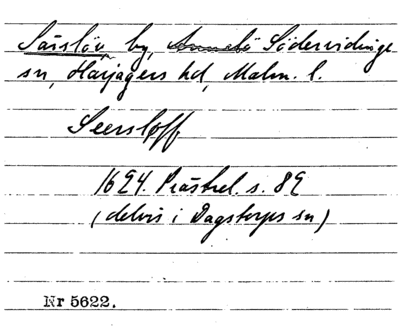 Särslöv, by, Annelö Södervidinge
sn, Harjagers hd, Malm. l.
Seersløff
1624. Prästrel. s. 89
(delvis i Dagstorps sn)
Nr 5622.